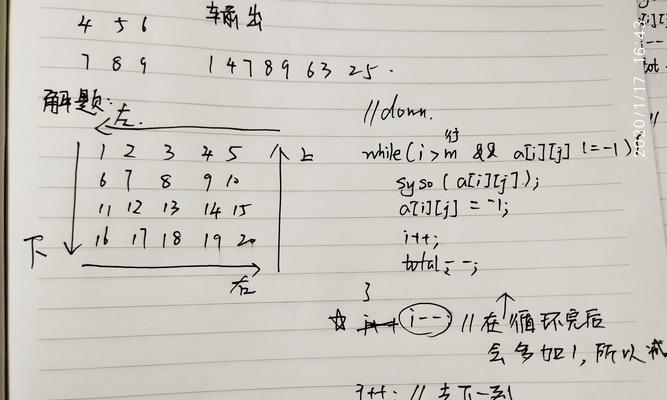 4 5 6
输出
7 8 9
1 4 7 8 9 6 3 2 5 .
解题:
左.
//down.
1 2 3 4 5
上
行
while(i>m && a[i][j] !=-1)
6 7 8 9 10
syso(a[i][j]);
11 12 13 14 15
a[i][j] = -1;
16 17 18 19 20
下
i++;
右
total--;
}
☆ i--; //在循环完后
会多加1,所以减
j++; //去下一列
2020/1/17 16:43
tot
//